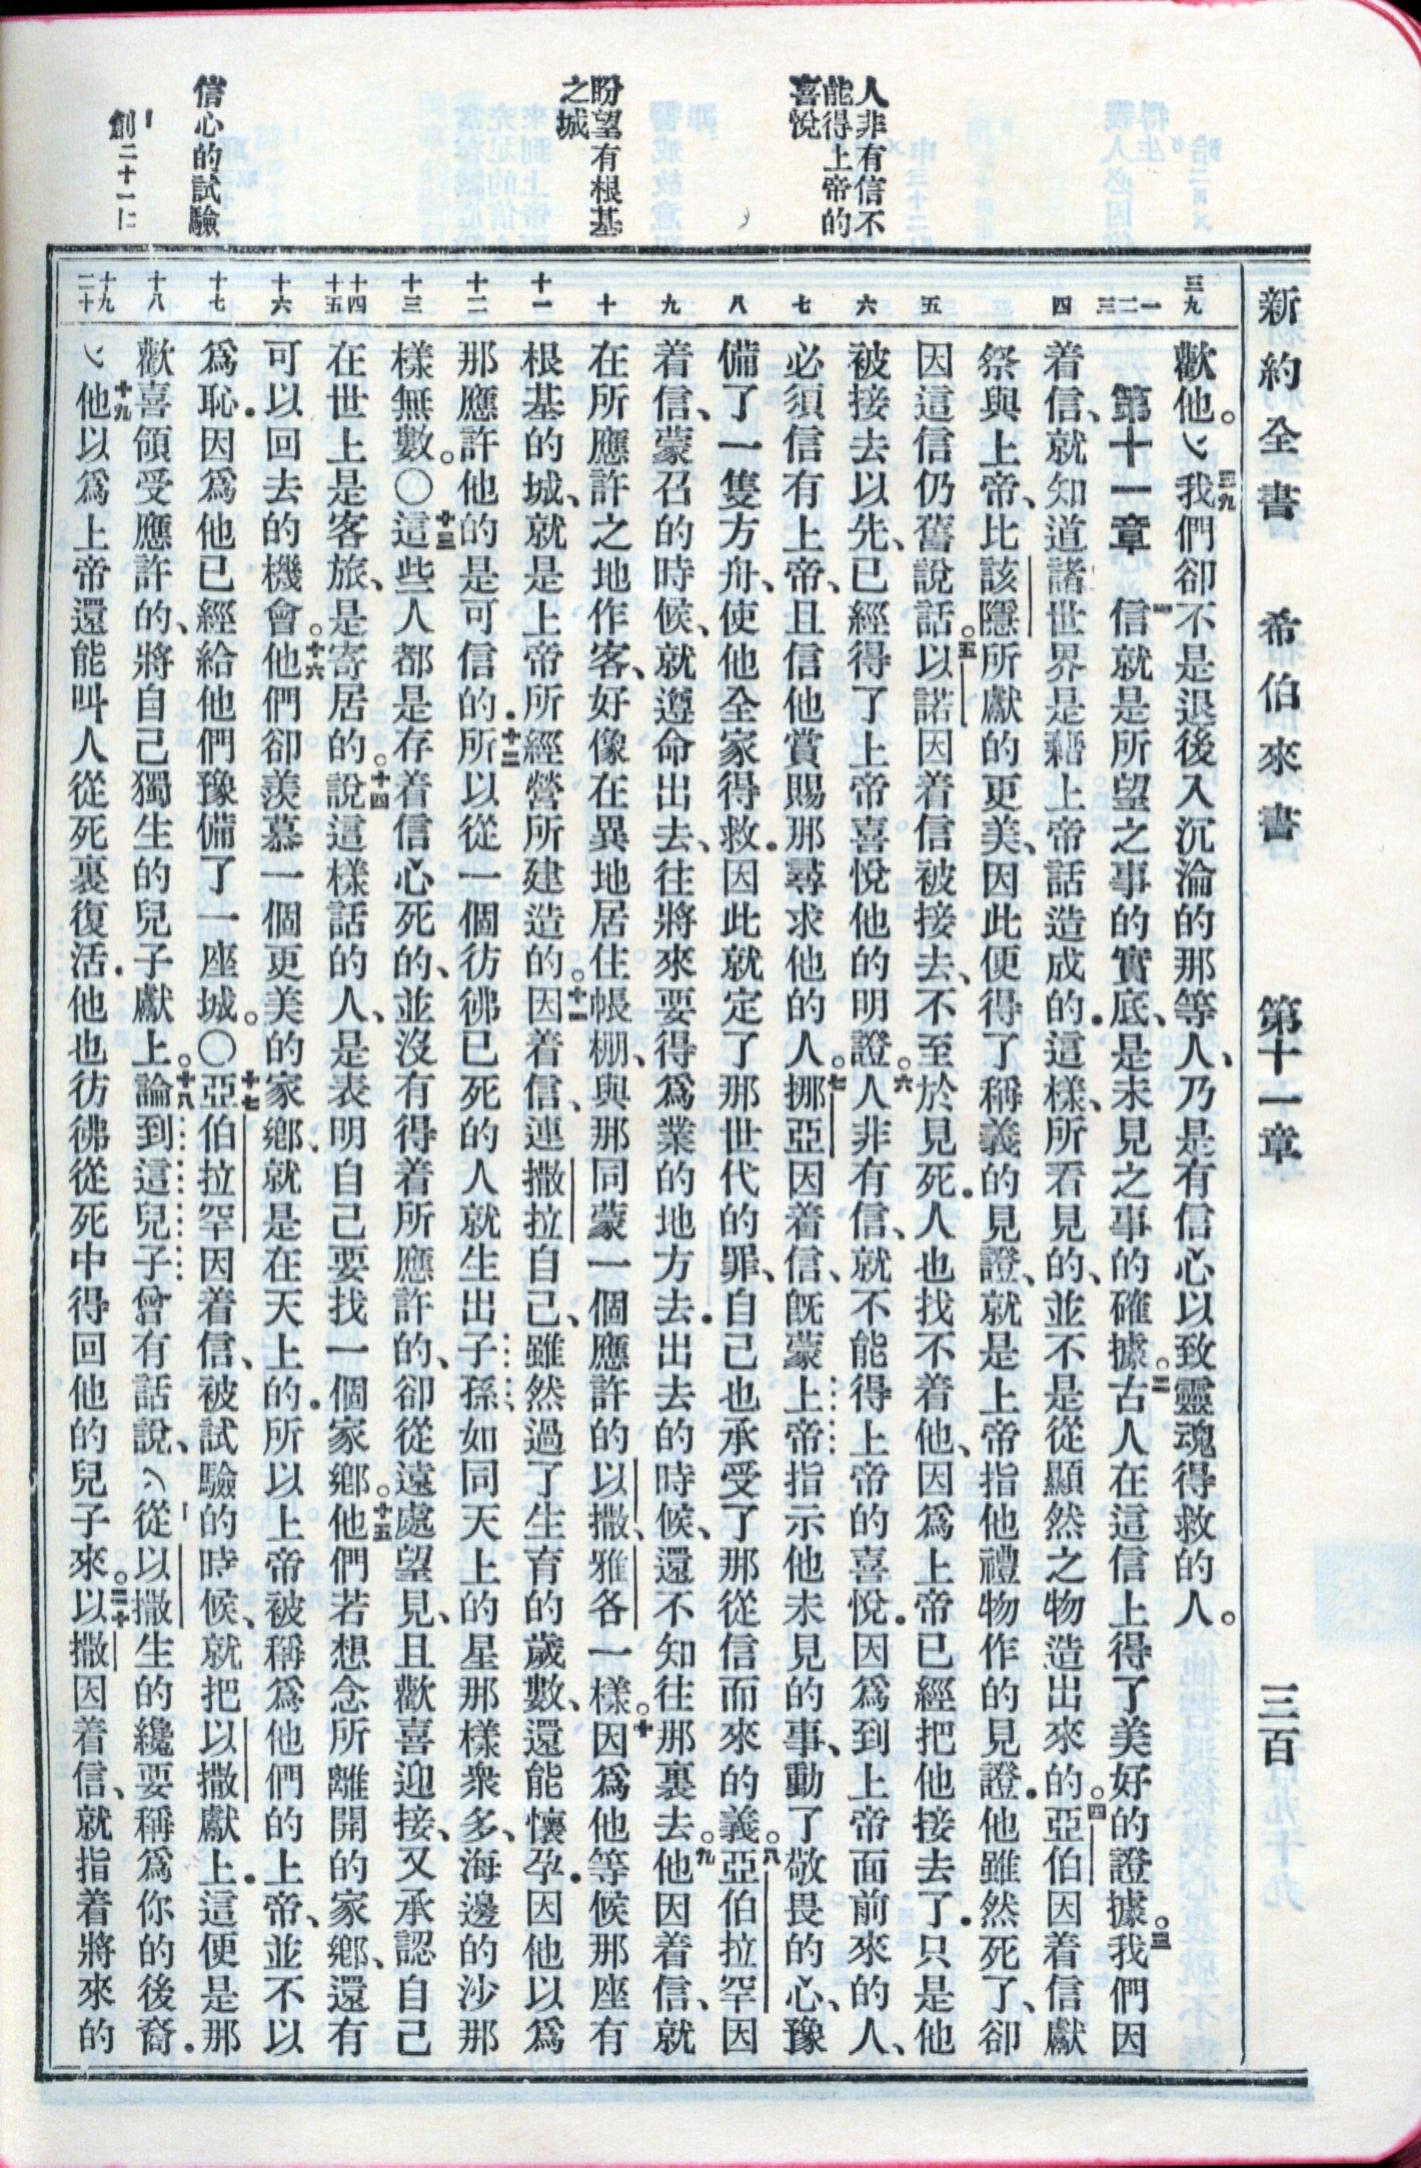 新約全書　希伯來書　第十一章　三百
人非有信不
能得上帝的
喜悅
盼望有根基
之城
信心的試驗
創二十一
三九
一
二
三
四
五
六
七
八
九
十
十一
十二
十三
十四
十五
十六
十七
十八
十九
二十
歡他。乀三九我們卻不是退後入沉淪的那等人、乃是有信心以致靈魂得救的人。
第十一章　一信就是所望之事的實底、是未見之事的確據。二古人在這信上得了美好的證據。三我們因
着信、就知道諸世界是藉上帝話造成的．這樣、所看見的、並不是從顯然之物造出來的。四亞伯因着信獻
祭與上帝、比該隱所獻的更美、因此便得了稱義的見證、就是上帝指他禮物作的見證．他雖然死了、卻
因這信仍舊說話。五以諾因着信被接去、不至於見死．人也找不着他、因爲上帝已經把他接去了．只是他
被接去以先、已經得了上帝喜悅他的明證。六人非有信、就不能得上帝的喜悅．因爲到上帝面前來的人、
必須信有上帝、且信他賞賜那尋求他的人。七挪亞因着信、旣蒙上帝指示他未見的事、動了敬畏的心、豫
備了一隻方舟、使他全家得救．因此就定了那世代的罪、自己也承受了那從信而來的義。八亞伯拉罕因
着信、蒙召的時候、就遵命出去、往將來要得爲業的地方去．出去的時候、還不知往那裏去。九他因着信、就
在所應許之地作客、好像在異地居住帳棚、與那同蒙一個應許的以撒、雅各一樣。十因爲他等候那座有
根基的城、就是上帝所經營所建造的。十一因着信、連撒拉自己、雖然過了生育的歲數、還能懷孕．因他以爲
那應許他的是可信的．十二所以從一個彷彿已死的人就生出子孫、如同天上的星那樣衆多、海邊的沙那
樣無數。〇十三這些人都是存着信心死的、並沒有得着所應許的、卻從遠處望見、且歡喜迎接、又承認自己
在世上是客旅、是寄居的。十四說這樣話的人、是表明自己要找一個家鄕。十五他們若想念所離開的家鄕、還有
可以回去的機會。十六他們卻羨慕一個更美的家鄕、就是在天上的．所以上帝被稱爲他們的上帝、並不以
爲恥．因爲他已經給他們豫備了一座城。〇十七亞伯拉罕因着信、被試驗的時候、就把以撒獻上．這便是那
歡喜領受應許的、將自己獨生的兒子獻上。十八論到這兒子曾有話說、乀從以撒生的纔要稱爲你的後裔．
乀十九他以爲上帝還能叫人從死裏復活．他也彷彿從死中得回他的兒子來。二十以撒因着信、就指着將來的